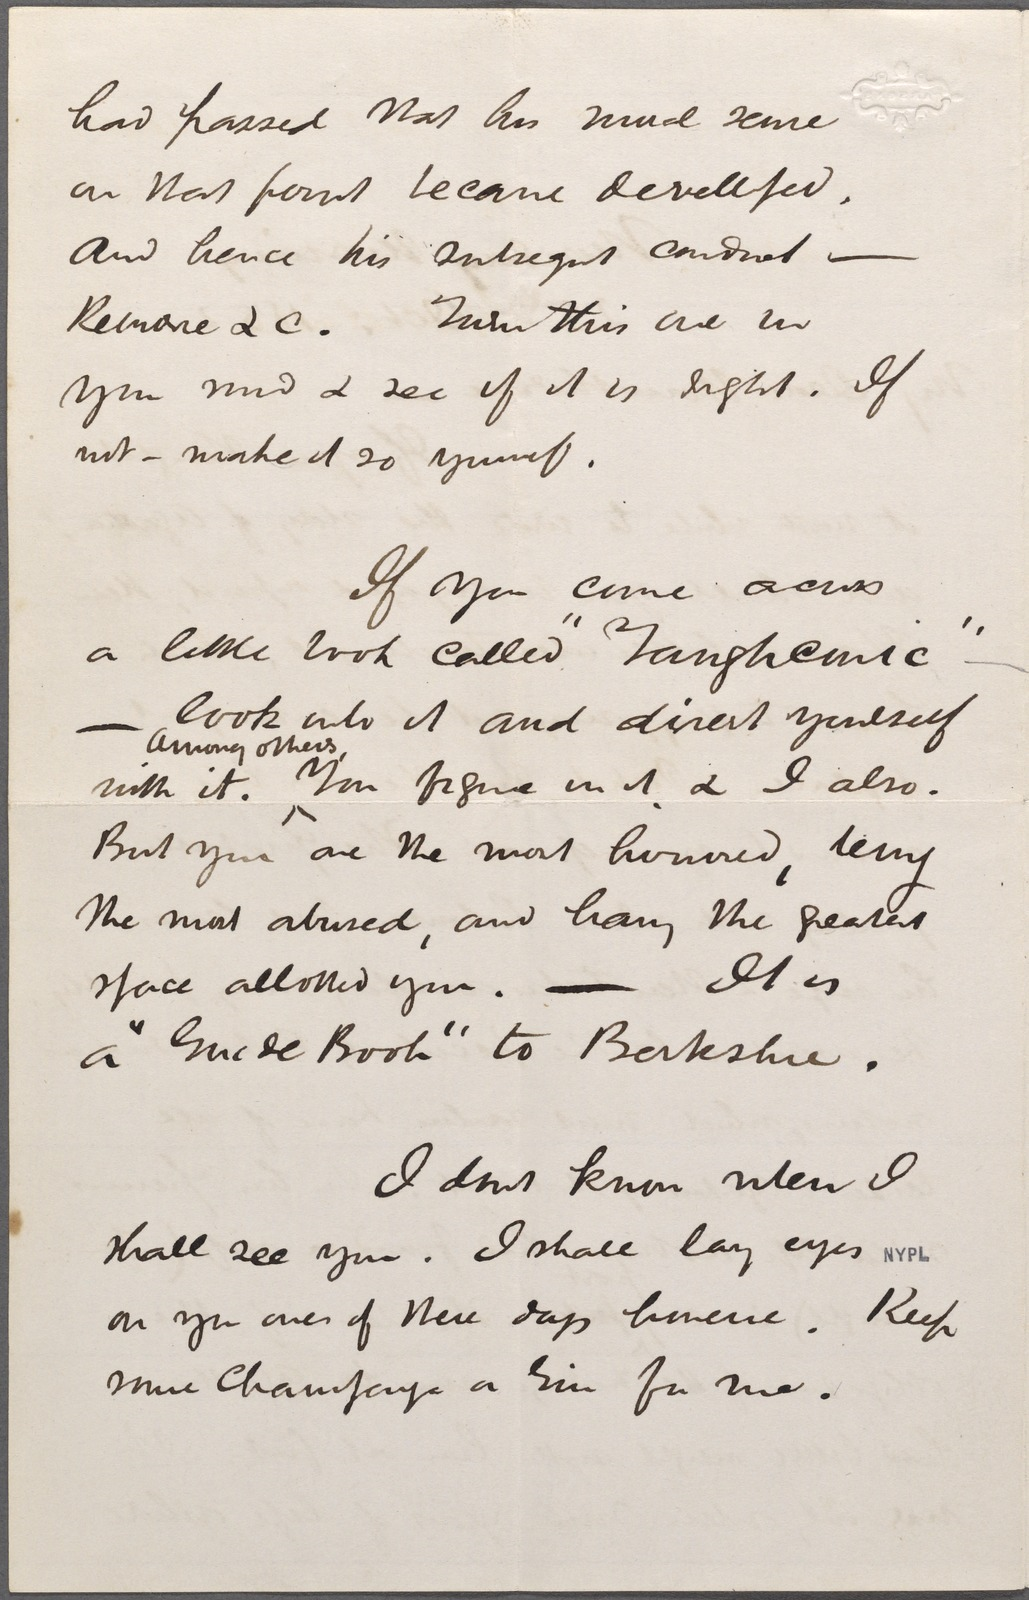 had passed that his moral sense
on that point became devellped.
And hence his subsequt conduct —
Remorse &c. Turn this over in
your mind & see if it is right. If
not — make it so yourself.
If you come across
a little book called "Taughconic"
— look into it and divert yourself
Among others,
with it. You figure in it, & I also.
But you are the most honored, being
the most abused, and having the greatest
space allotted you. — It is
a "Guide Book" to Berkshire.
I dont know when I
shall see you. I shall lay eyes
NYPL
on you one of these days however. Keep
some Champagne or Gin for me.